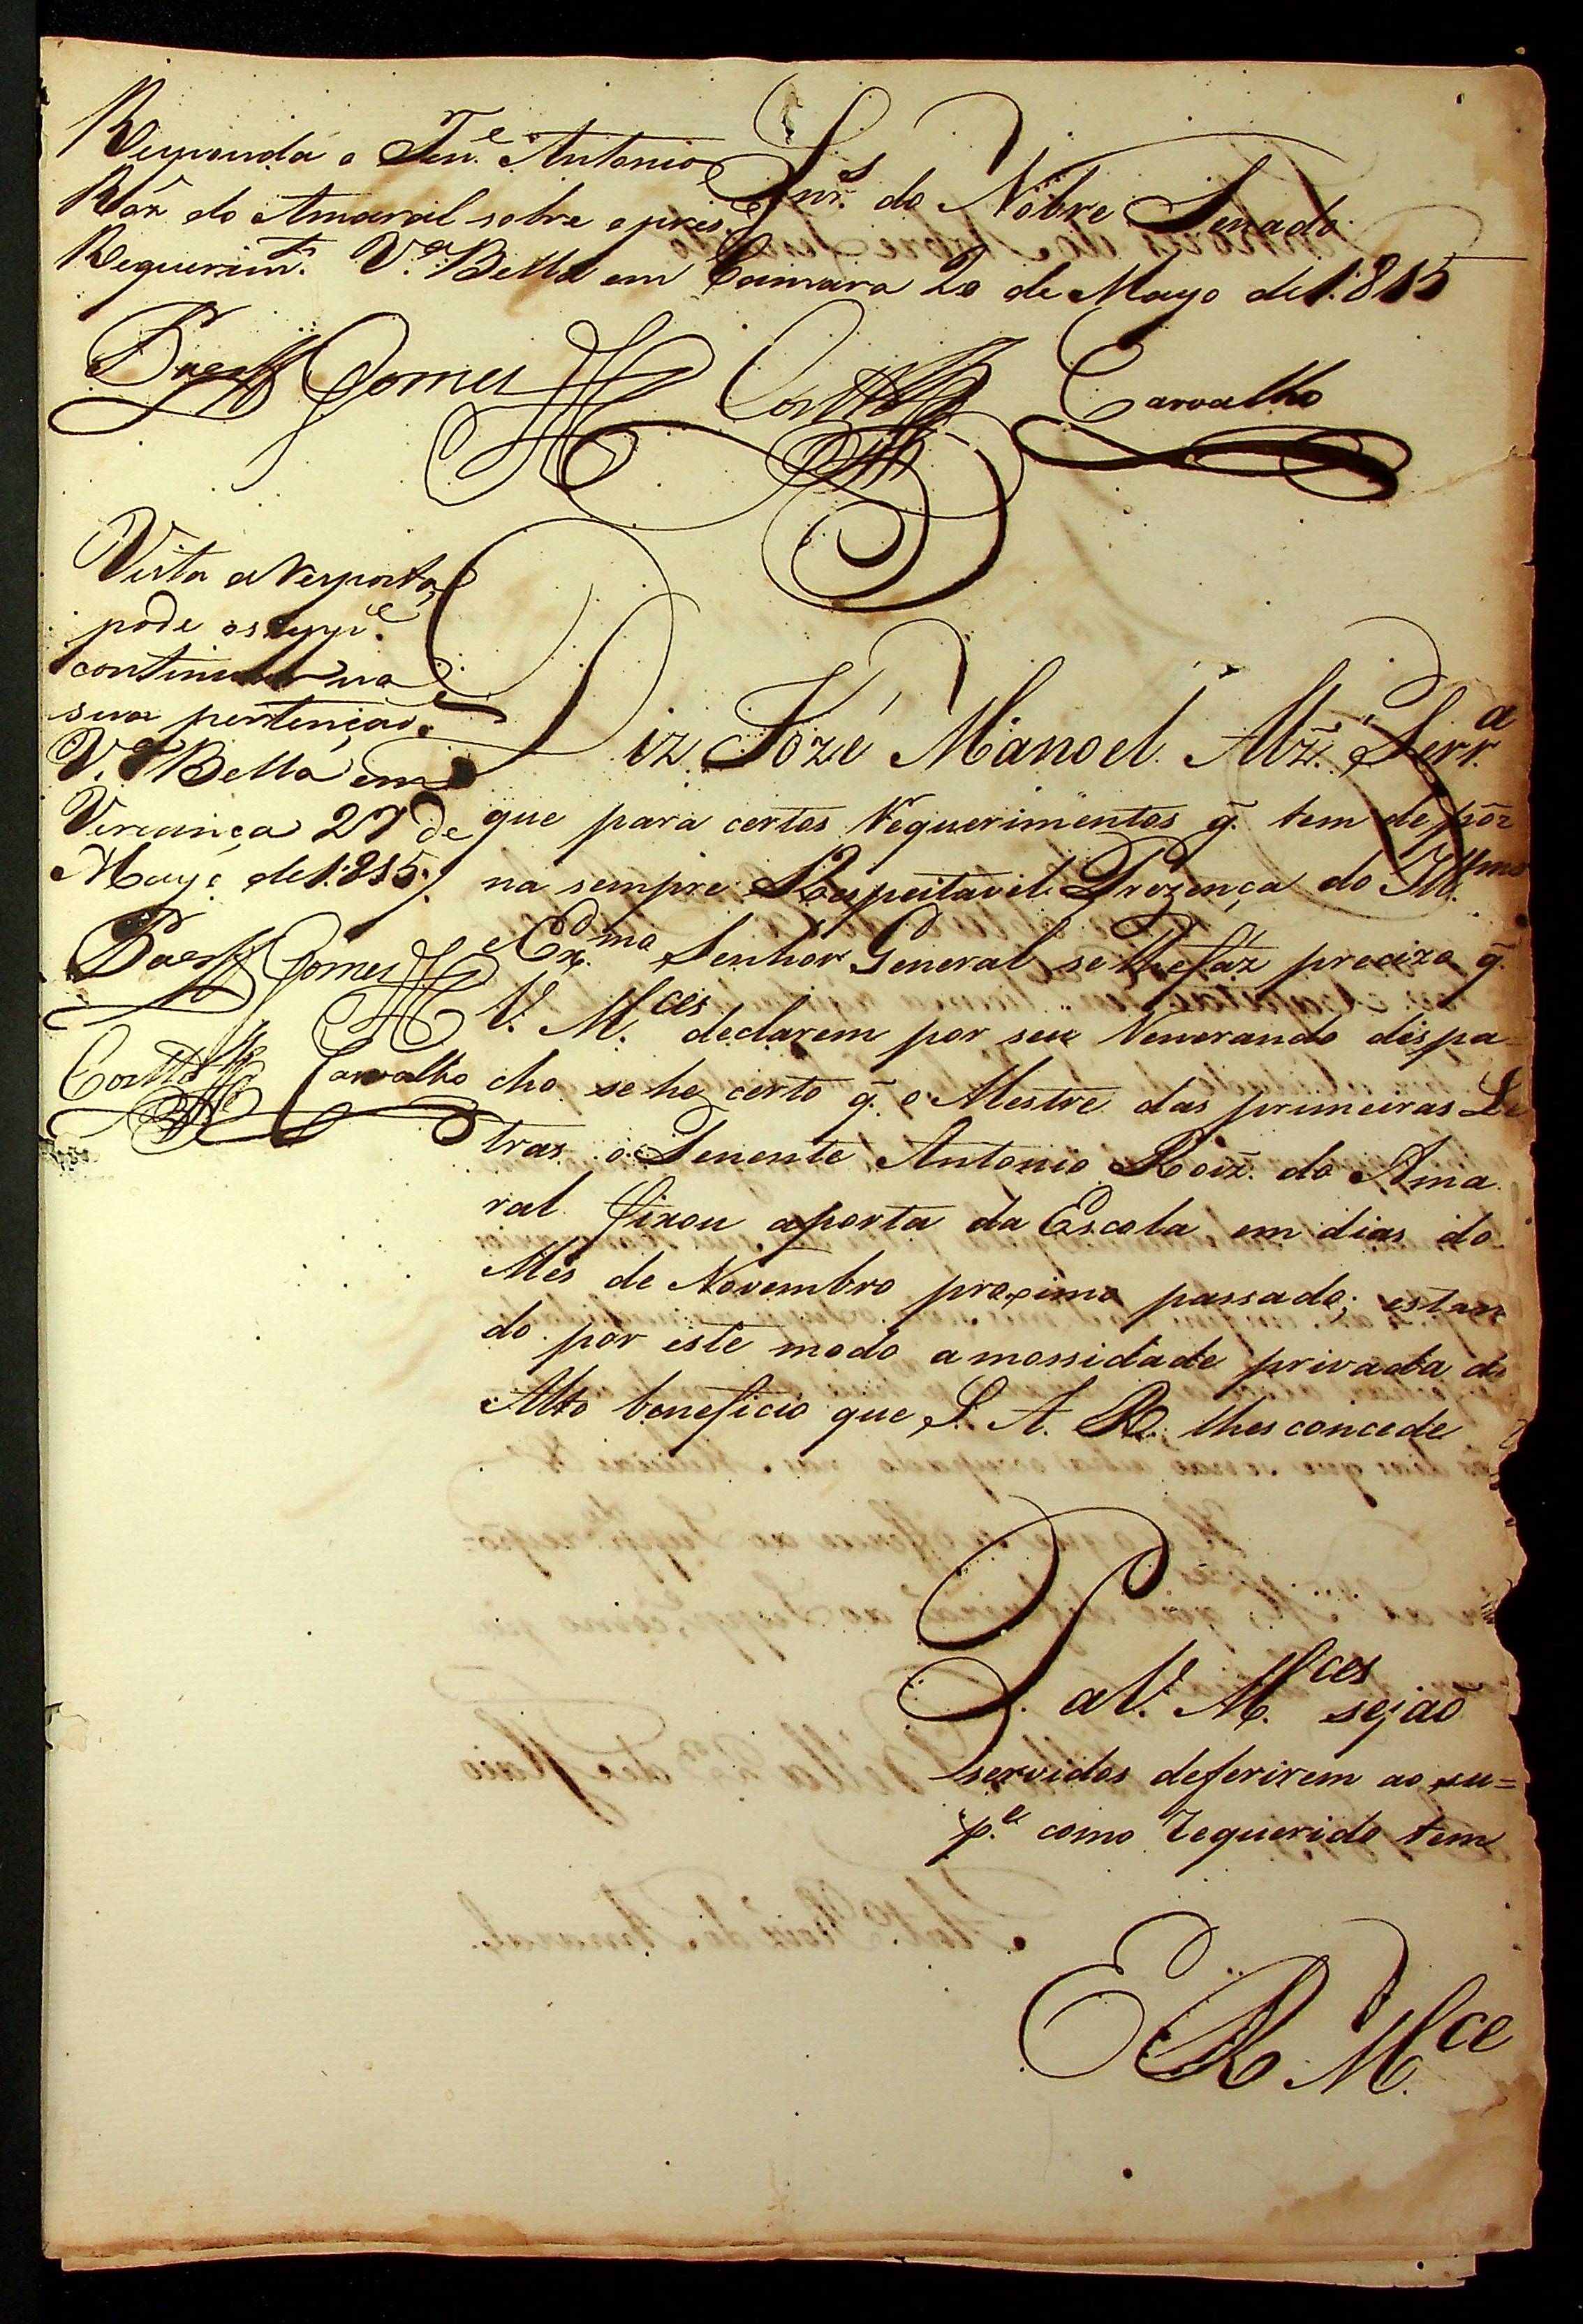 Snr.es do Nobre Senado
Responda o Ten.e Antonio
Roiz do Amaral sobre o pres.e
Requerim.to V.a Bella em Camara 20 de Mayo de 1:815
Paes Gomes Costa Carvalho
Vista a Resposta,
pode o supp.e
continuar na
sua pertenção.
V.a Bella em
Vereança 27 de
Mayo de 1:815;
Paes Gomes
Costa Carvalho
Diz Jozé Manoel Alz. Serr.a
que para certos Requerimentos q̃. tem de pôr
na sempre Respeitavel Prezença do Ill.mo
e Ex.mo Senhor General se lhe fáz precizo q̃.
V. M.ces declarem por seu Venerando dispa=
cho se he certo q̃. o Mestre das primeiras Le
tras o Tenente Antonio Roiz. do Ama
ral fixou a porta da Escola em dias do
Mês de Novembro proximo passado; estan
do por este modo a mossidade privada do
Alto beneficio que S. A. R. lhes concede
P. a V. M.ces sejaõ
servidos deferirem ao su=
p.e como requerido tem
E R M.ce